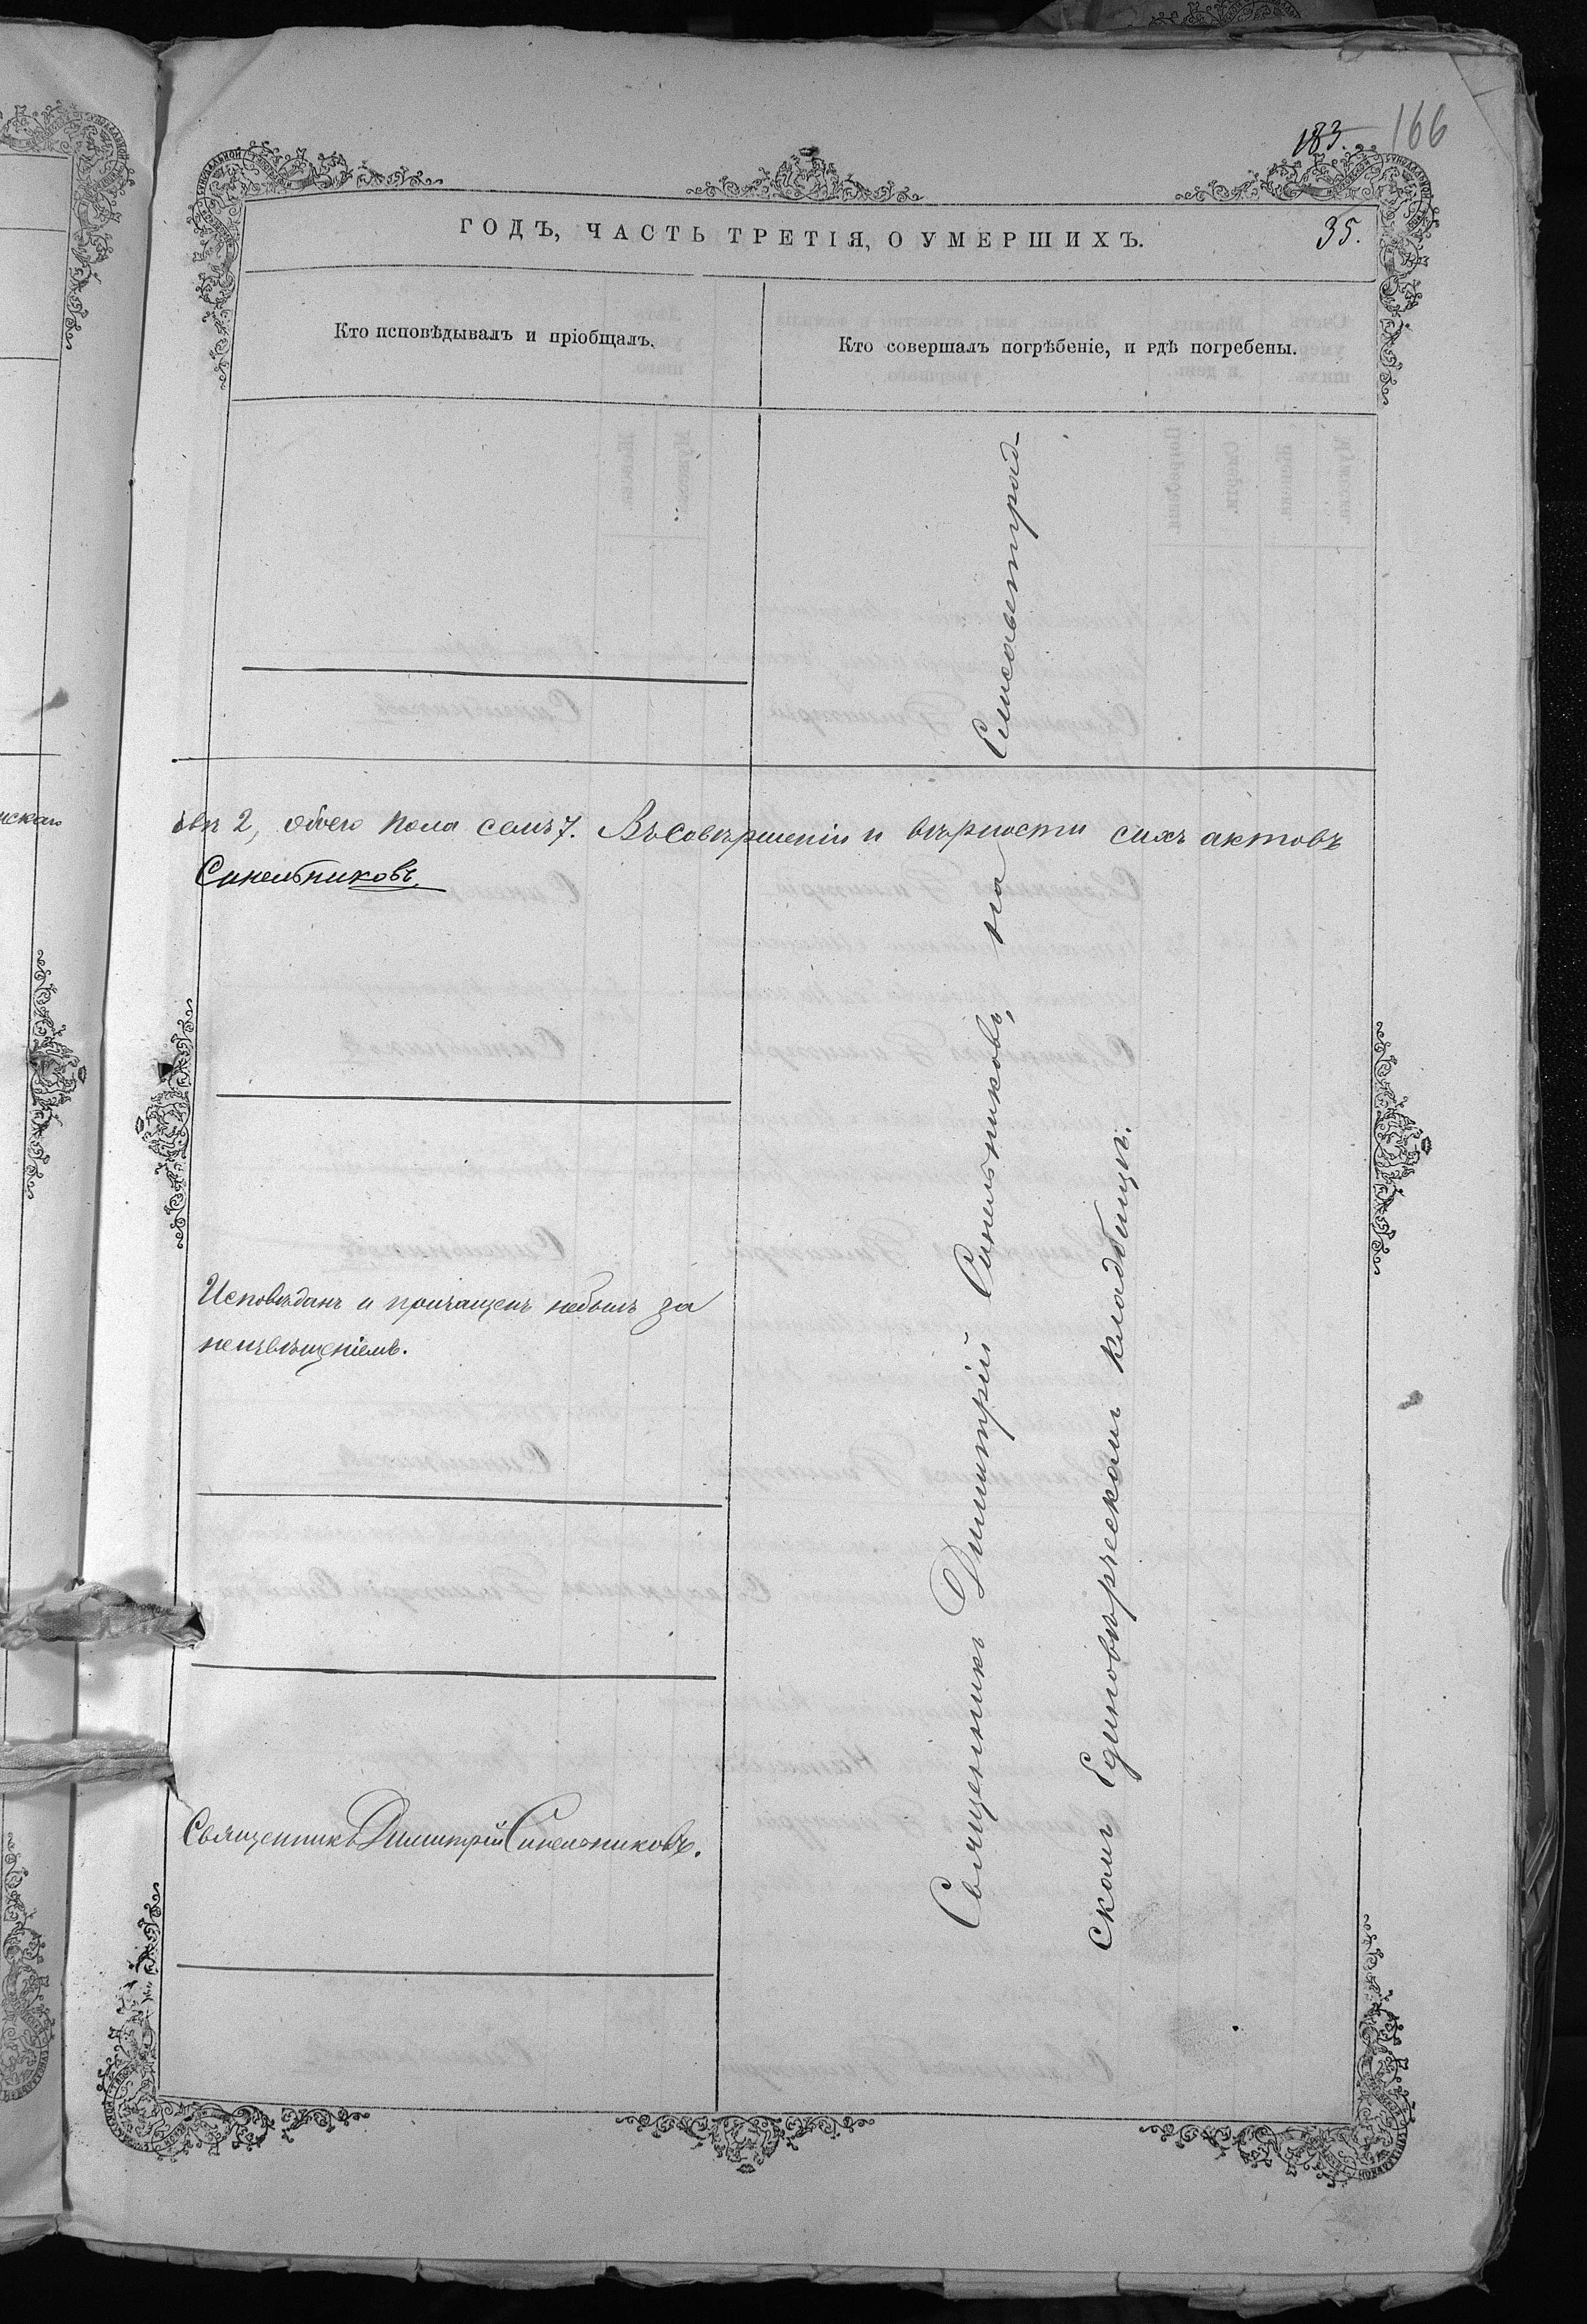 183.
166
ГОДЪ, ЧАСТЬ ТРЕТІЯ, О УМЕРШИХЪ.
35.
Кто исповѣдывалъ и пріобщалъ.
Кто совершалъ погрѣбеніе, и гдѣ погребены.
2, обоего пола семь 7. Въ совершеніи и вѣрности сихъ актовъ
Синельниковъ.
Исповѣданъ и причащенъ небылъ за
неизвѣщеніемъ.
Священникъ Димитрій Синельниковъ.
Священникъ Димитрій Синельниковъ, на Елисаветград-
скомъ Единовѣрческомъ кладбищѣ.